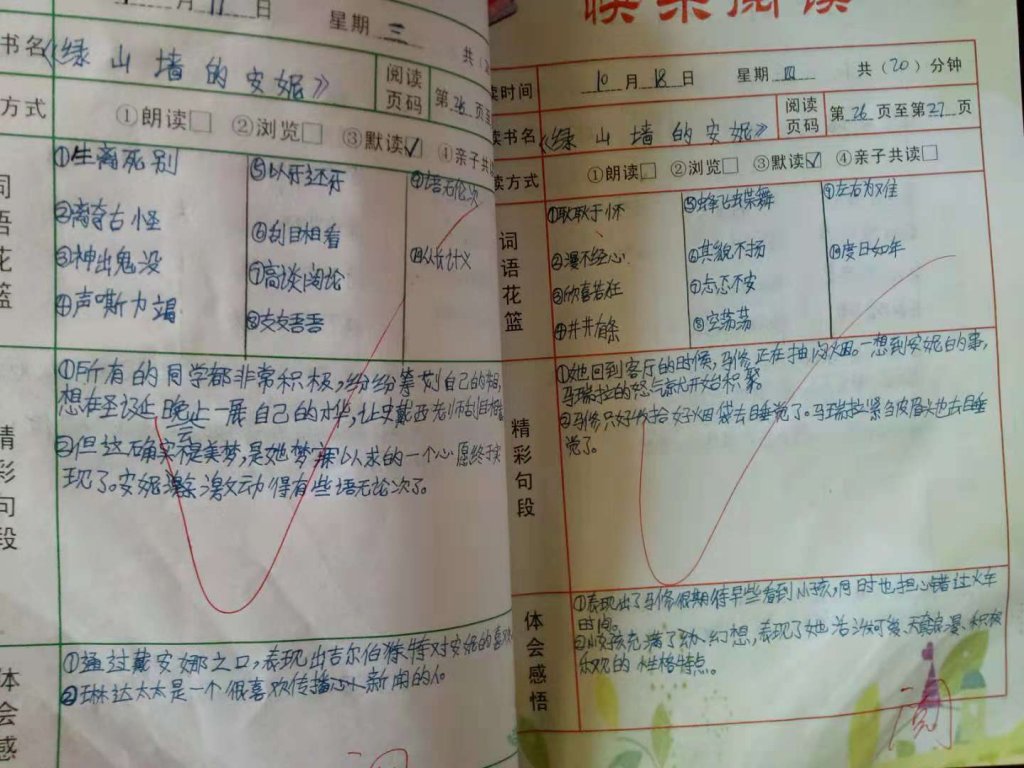 月11日 星期三 共(
书名《绿山墙的安妮》 阅读页码 第26页至
方式 ①朗读□ ②浏览□ ③默读☑ ④亲子共
词语花篮
①生离死别 ⑤以牙还牙 ⑨语无伦次
②离奇古怪 ⑥刮目相看
③神出鬼没 ⑦高谈阔论
④声嘶力竭 ⑧支支吾吾
精彩句段
①所有的同学都非常积极,纷纷筹划自己的节目,
想在圣诞晚会上一展自己的才华,让史戴西老师刮目相看
②但这确实不是美梦,是她梦寐以求的一个心愿终于实
现了。安妮激动得有些语无论次了。
体会感
①通过戴安娜之口,表现出吉尔伯特对安妮的喜欢
②琳达太太是一个很喜欢传播小新闻的人。
快乐阅读
读时间 10月18日 星期四 共(20)分钟
读书名《绿山墙的安妮》 阅读页码 第26页至第27页
读方式 ①朗读□ ②浏览□ ③默读☑ ④亲子共读□
词语花篮
①耿耿于怀 ⑤蜂飞蝶舞 ⑨左右为难
②漫不经心 ⑥其貌不扬 ⑩度日如年
③欣喜若狂 ⑦忐忑不安
④井井有条 ⑧空荡荡
精彩句段
①她回到客厅的时候,马修正在抽闷烟。一想到安妮的事,
马瑞拉的怒气就开始积聚。
②马修只好收拾好烟袋去睡觉了。马瑞拉紧刍皮眉头也去睡
觉了。
体会感悟
①表现出了马修很期待早些看到小孩,同时也担心错过火车
时间。
②女孩充满了幻想,表现了她活泼可爱、天真烂漫、积极
乐观的性格特点。
阅